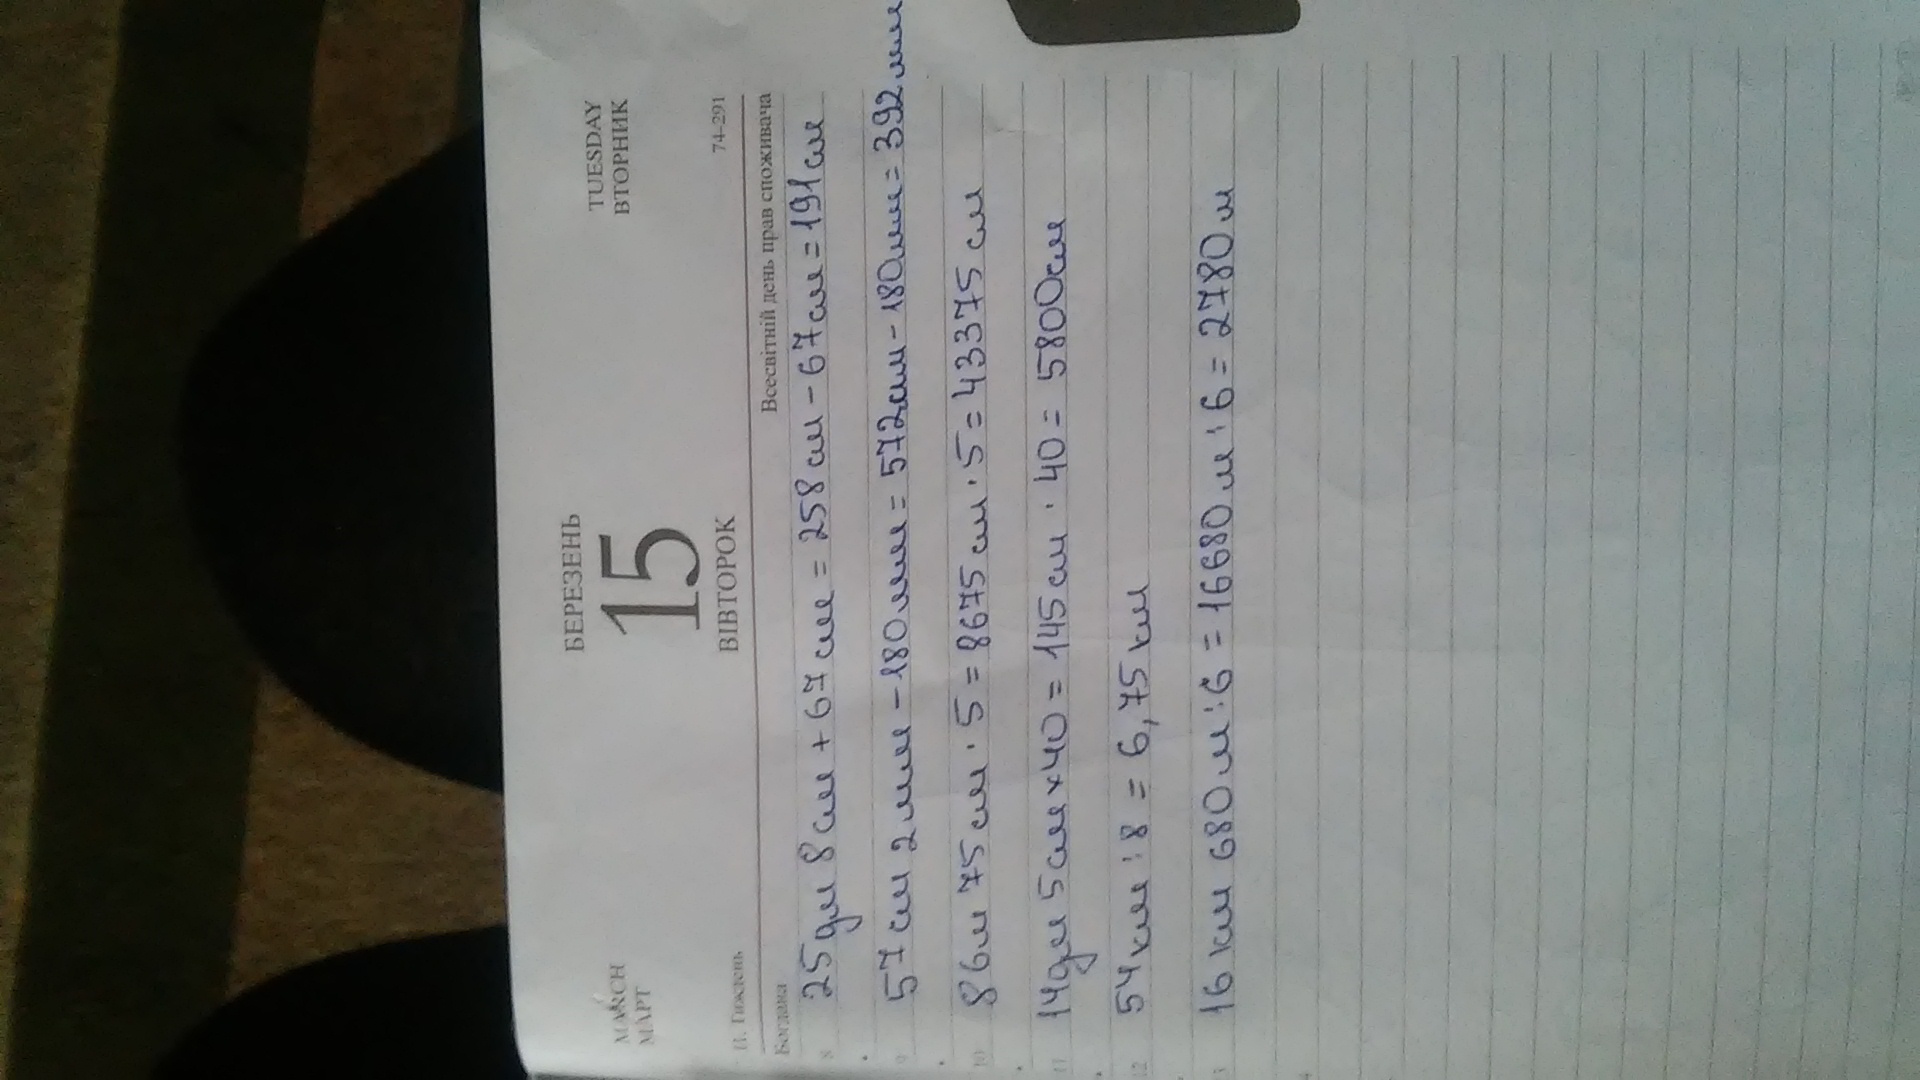 MARCH
МАРТ
БЕРЕЗЕНЬ
15
ВІВТОРОК
TUESDAY
ВТОРНИК
11. Тиждень
74-291
Всесвітній день прав споживача
8 25 дм 8 см + 67 см = 258 см - 67 см = 191 см
9 57 см 2 мм - 180 мм = 572 см - 180 мм = 392 мм
10 86 м 75 см · 5 = 8675 см · 5 = 43375 см
11 14 дм 5 см × 40 = 145 см · 40 = 5800 см
12 54 км : 8 = 6,75 км
16 км 680 м : 6 = 16680 м : 6 = 2780 м